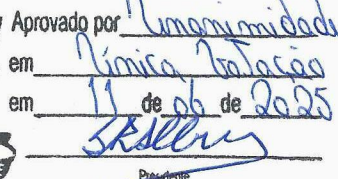 Aprovado por Unanimidade
em Única Votação
em 11 de 06 de 2025
Presidente